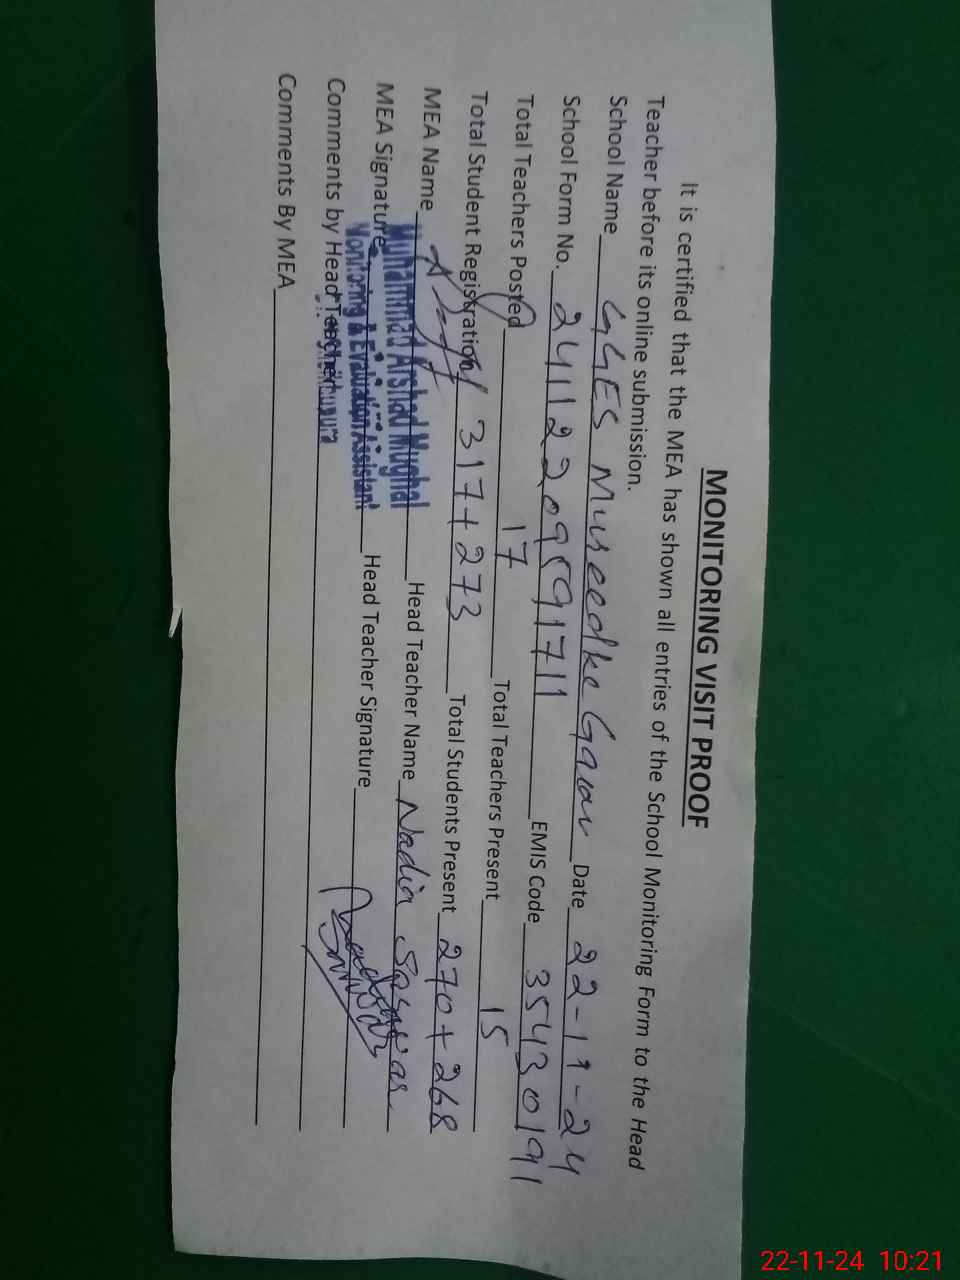 MONITORING VISIT PROOF
It is certified that the MEA has shown all entries of the School Monitoring Form to the Head
Teacher before its online submission.
School Name GGES Mureedke Gaon Date 22-11-24
School Form No. 24112209591711 EMIS Code 35430191
Total Teachers Posted 17 Total Teachers Present 15
Total Student Registration 317+273 Total Students Present 270+268
MEA Name Muhammad Arshad Mughal Head Teacher Name Nadia Sarwar
MEA Signature Monitoring & Evaluation Assistant Head Teacher Signature
Comments by Head Teacher Sheikhupura
Comments By MEA
22-11-24 10:21